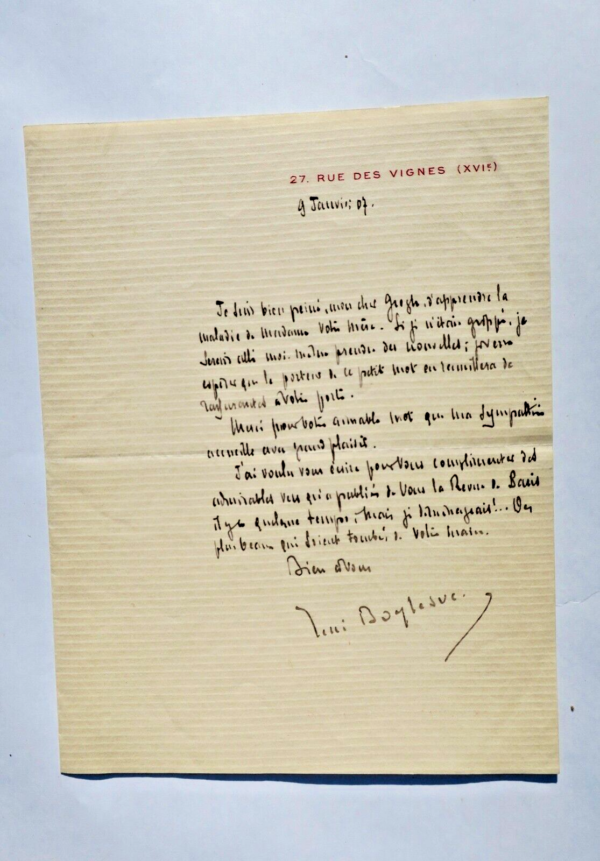 27. RUE DES VIGNES (XVIᵉ)
9 Janvier 07.
Je suis bien peiné, mon cher Gregh, d'apprendre la
maladie de Madame votre mère. Si je n'étais grippé, je
serais allé moi-même prendre des nouvelles; j'ose
espérer que le porteur de ce petit mot en recueillera de
rassurantes à votre porte.
Merci pour votre aimable mot que ma sympathie
accueille avec grand plaisir.
J'ai voulu vous écrire pour vous complimenter des
admirables vers qu'a publiés de vous la Revue de Paris
il y a quelque temps; mais je déménageais!.. Des
plus beaux qui soient tombés de votre main.
Bien à vous
René Boylesve.